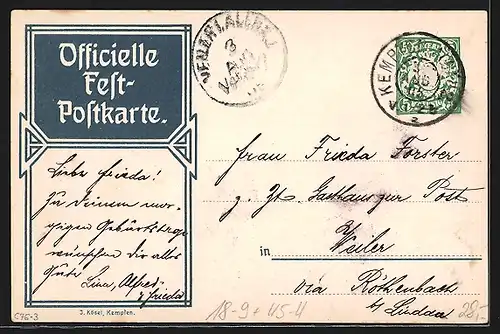 Officielle
Fest-
Postkarte.
Liebe Frieda!
Zu Deinem mor-
gigen Geburtstage
wünschen dir alles
Gute
Lina, Alfred,
Frieda
J. Kösel, Kempten.
3
KEMP
Frau Frieda Forster
z. Zt. Gasthaus zur Post
in Weiler
via Röthenbach
b/ Lindau
C76-3
18-9+45-4
28,-